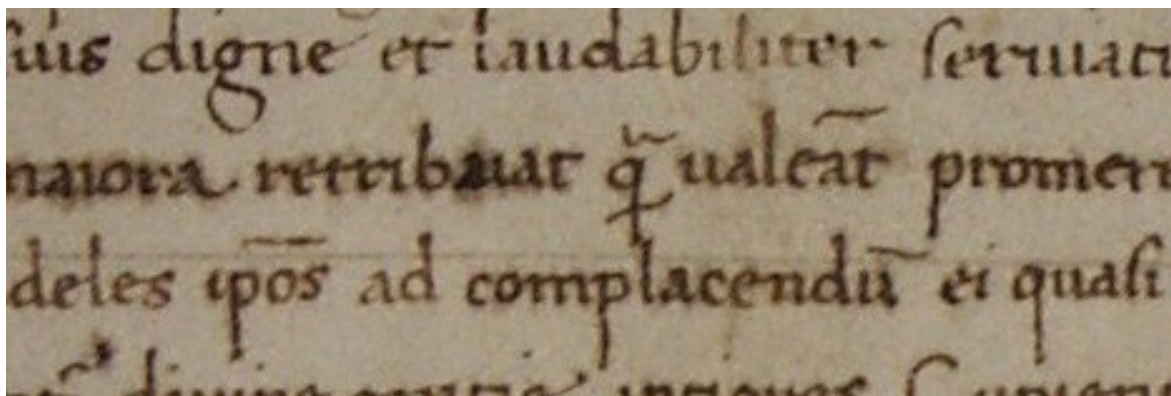 suis digne et laudabiliter seruiat
maiora retribuat q̃ ualeāt promer
deles ip̄os ad complacendū ei quasi